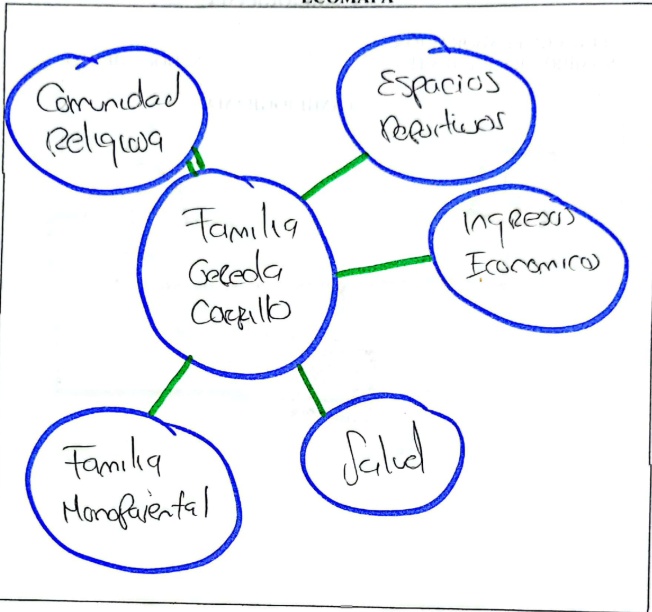 ECOMAPA
Comunidad
Religiosa
Espacios
Deportivos
Familia
Gereda
Carrillo
Ingresos
Economicos
Familia
Monoparental
Salud